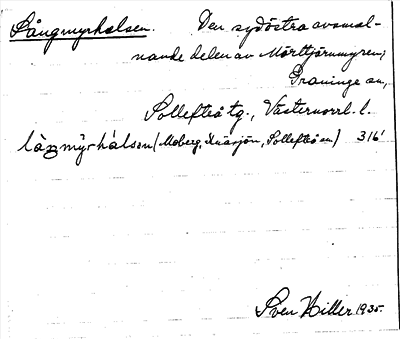 Långmyrhalsen. Den sydöstra avsmal-
nande delen av Mörttjärnmyren,
Graninge sn,
Sollefteå tg., Västernorrl. l.
làŋmy̆rhálsən (Moberg, Knäsjön, Sollefteå sn) 316'
Sven Hiller 1935.